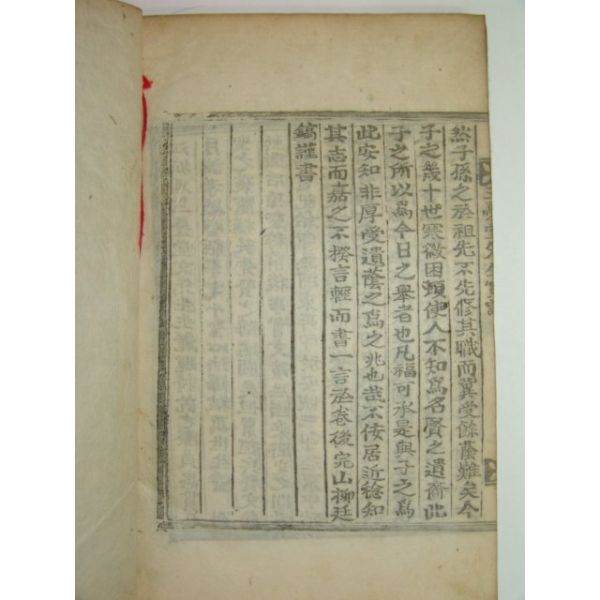 然子孫之於祖先不先修其職而冀受餘蔭難矣今
子之幾十世寒微困頓使人不知爲名賢之遺裔此
子之所以爲今日之擧者也凡福可永是與子之爲
此安知非厚受遺蔭之爲之兆也哉不佞居近稔知
其志而嘉之不揆言輕而書一言於卷後完山柳廷
鎬謹書